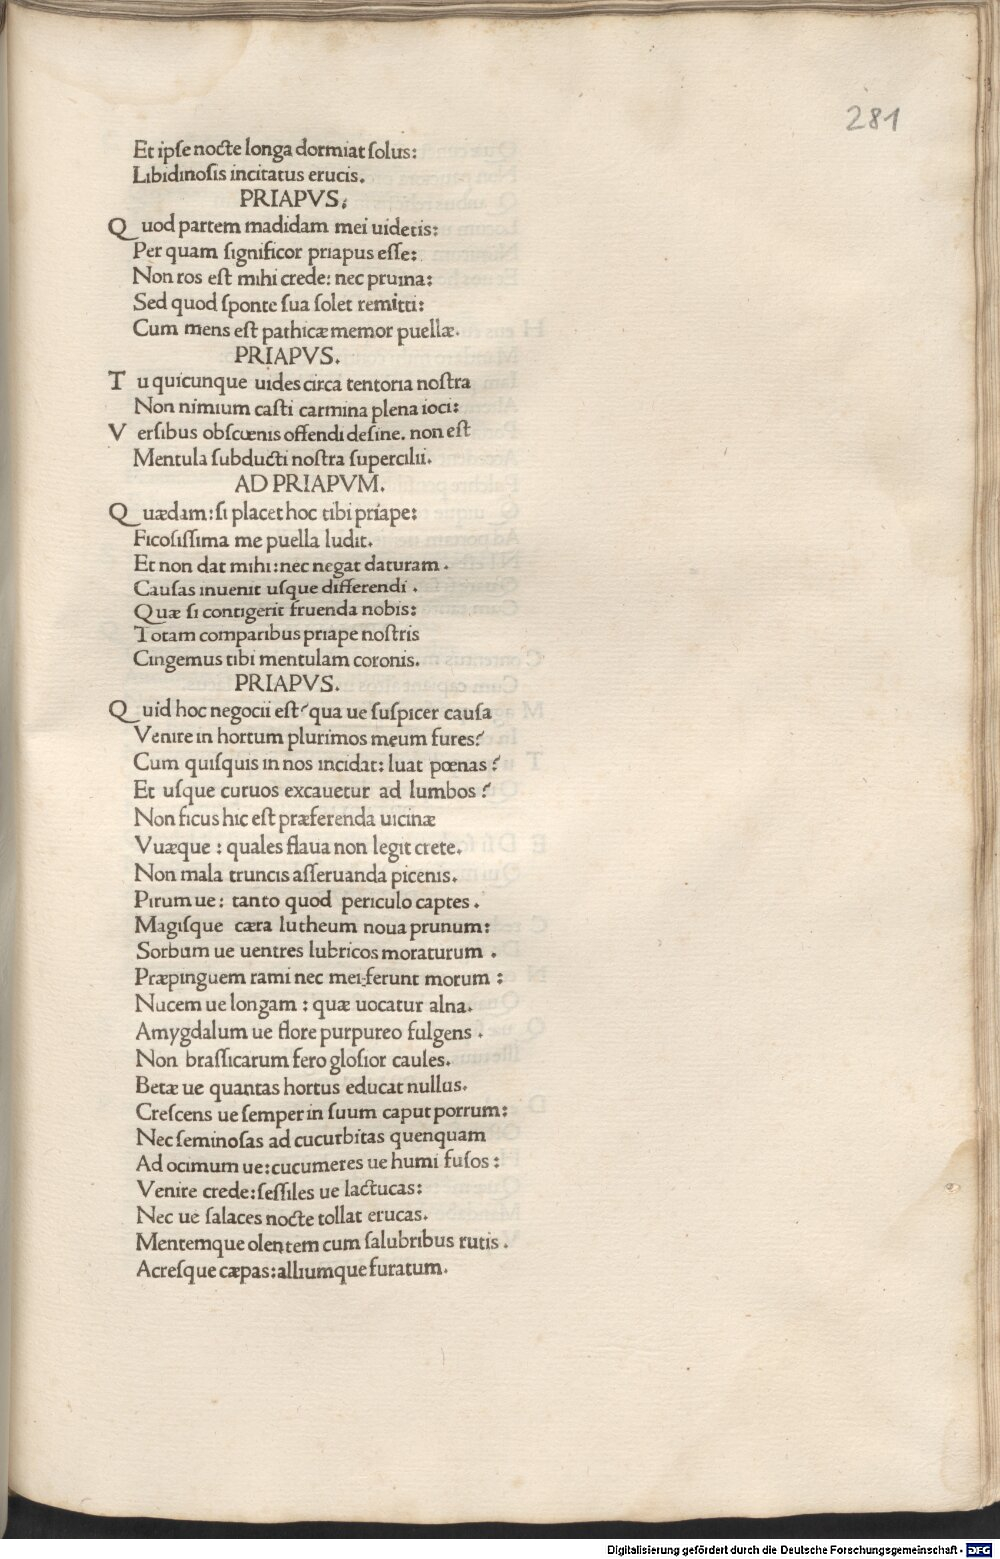 281
Et ipſe nocte longa dormiat ſolus:
Libidinoſis incitatus erucis.
PRIAPVS:
Q uod partem madidam mei uidetis:
Per quam ſignificor priapus eſſe:
Non ros eſt mihi crede: nec pruina:
Sed quod ſponte ſua ſolet remitti:
Cum mens eſt pathicæ memor puellæ.
PRIAPVS.
T u quicunque uides circa tentoria noſtra
Non nimium caſti carmina plena ioci:
V erſibus obſcœnis offendi deſine. non eſt
Mentula ſubducti noſtra ſupercilii.
AD PRIAPVM.
Q uædam: ſi placet hoc tibi priape:
Ficoſiſſima me puella ludit.
Et non dat mihi: nec negat daturam.
Cauſas inuenit uſque differendi.
Quæ ſi contigerit fruenda nobis:
Totam comparibus priape noſtris
Cingemus tibi mentulam coronis.
PRIAPVS.
Q uid hoc negocii eſt? qua ue ſuſpicer cauſa
Venire in hortum plurimos meum fures?
Cum quiſquis in nos incidat: luat pœnas?
Et uſque curuos excauetur ad lumbos?
Non ficus hic eſt præferenda uicinæ
Vuæque: quales flaua non legit crete.
Non mala truncis aſſeruanda picenis.
Pirum ue: tanto quod periculo captes.
Magiſque cæra lutheum noua prunum:
Sorbum ue uentres lubricos moraturum.
Præpinguem rami nec mei ferunt morum:
Nucem ue longam: quæ uocatur alna.
Amygdalum ue flore purpureo fulgens.
Non braſſicarum fero gloſior caules.
Betæ ue quantas hortus educat nullus.
Creſcens ue ſemper in ſuum caput porrum:
Nec ſeminoſas ad cucurbitas quenquam
Ad ocimum ue: cucumeres ue humi fuſos:
Venire crede: ſeſſiles ue lactucas:
Nec ue ſalaces nocte tollat erucas.
Mentemque olentem cum ſalubribus rutis.
Acreſque cæpas: alliumque furatum.
Digitalisierung gefördert durch die Deutsche Forschungsgemeinschaft - DFG